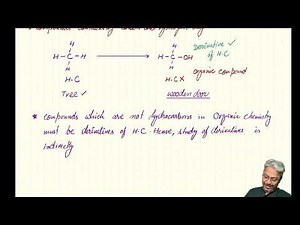 H
H
derivative ✓
of H·C
H-C-H
H-C-OH
H
H
organic compound
H·C
H·C X
Tree ✓
wooden door
* compounds which are not hydrocarbons in organic chemistry
must be derivatives of H·C. Hence, study of derivatives is
indirectly